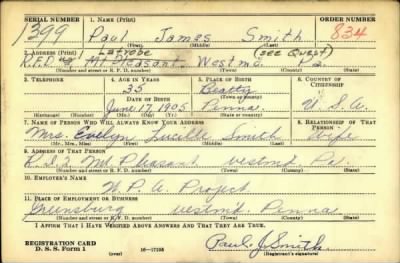 SERIAL NUMBER 1. NAME (Print) ORDER NUMBER
1399 Paul James Smith 834
(First) (Middle) (Last)
2. ADDRESS (Print) Latrobe (see Quest)
R.F.D. #2 Mt. Pleasant Westmd. Pa.
(Number and street or R. F. D. number) (Town) (County) (State)
3. TELEPHONE 4. AGE IN YEARS 5. PLACE OF BIRTH 6. COUNTRY OF CITIZENSHIP
35 Beatty
DATE OF BIRTH (Town or county)
June 17, 1905 Penna. U.S.A.
(Exchange) (Number) (Mo.) (Day) (Yr.) (State or country)
7. NAME OF PERSON WHO WILL ALWAYS KNOW YOUR ADDRESS 8. RELATIONSHIP OF THAT PERSON
Mrs. Evelyn Lucille Smith wife
(Mr., Mrs., Miss) (First) (Middle) (Last)
9. ADDRESS OF THAT PERSON
R.D. 2 Mt. Pleasant Westmd. Pa.
(Number and street or R. F. D. number) (Town) (County) (State)
10. EMPLOYER'S NAME
W.P.A. Project
11. PLACE OF EMPLOYMENT OR BUSINESS
Greensburg Westmd. Penna
(Number and street or R. F. D. number) (Town) (County) (State)
I AFFIRM THAT I HAVE VERIFIED ABOVE ANSWERS AND THAT THEY ARE TRUE.
REGISTRATION CARD
D. S. S. Form 1 (over) 16—17105 Paul J. Smith.
(Registrant's signature)